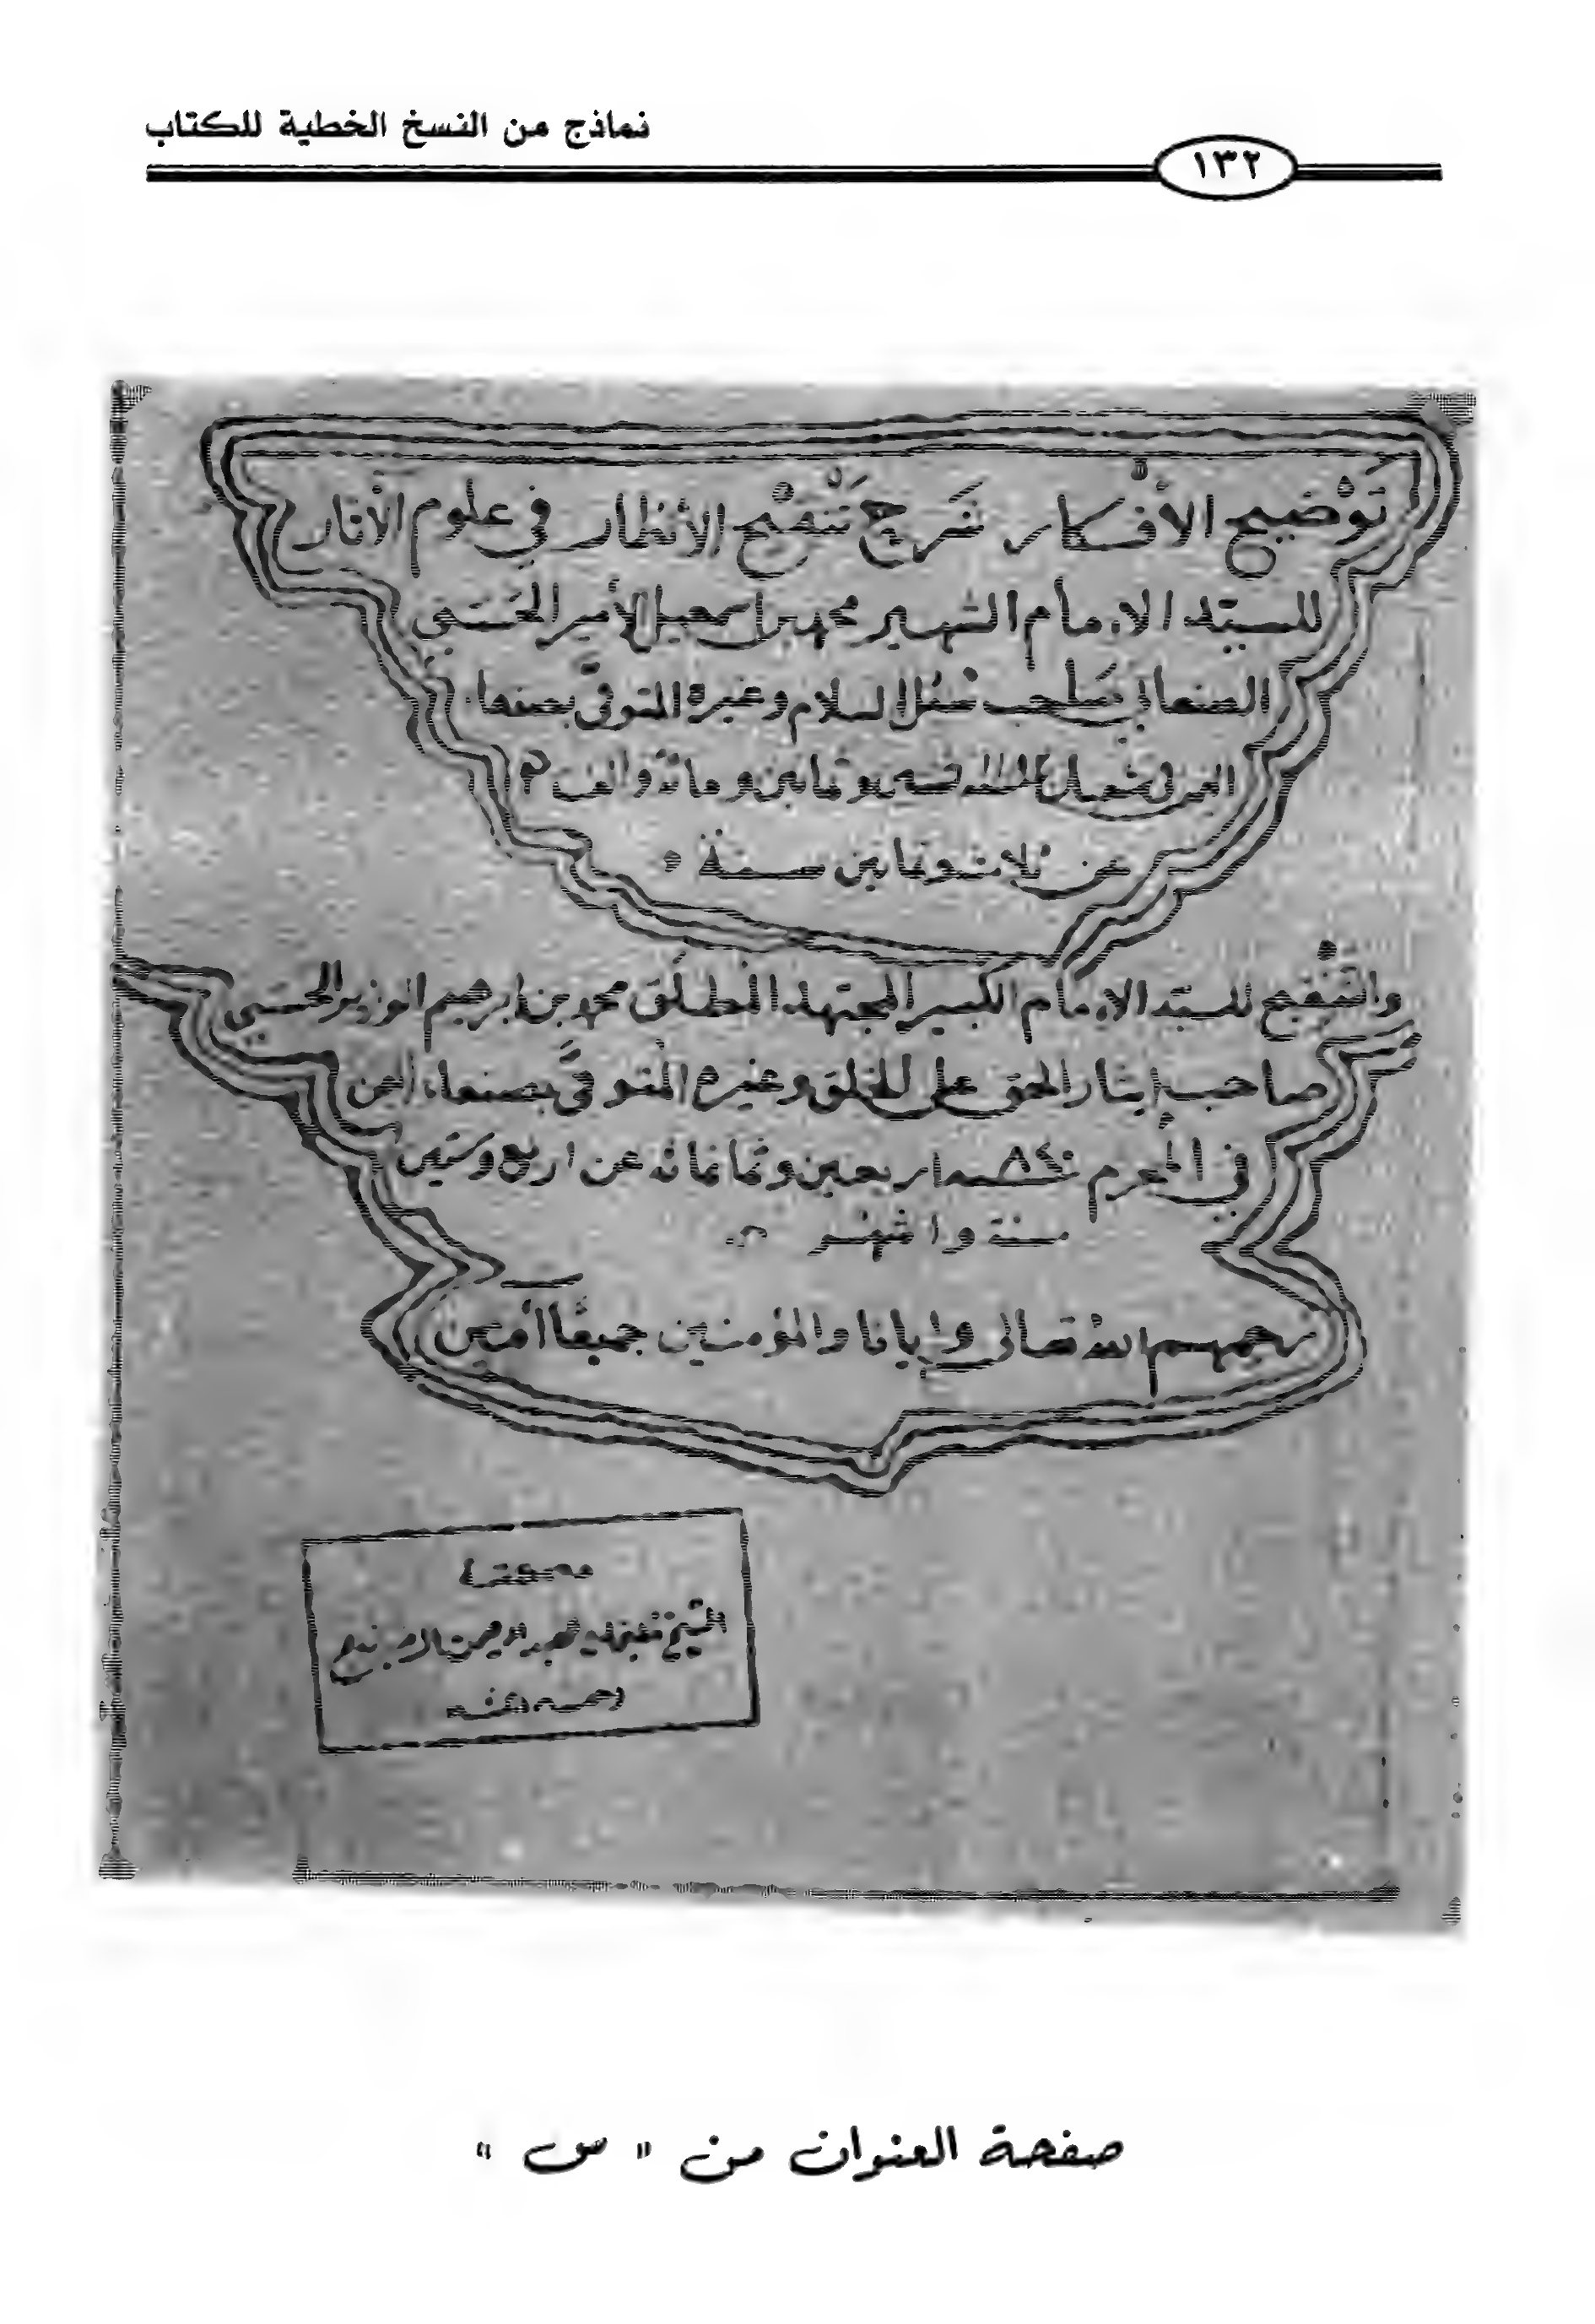 نماذج من النسخ الخطية للكتاب
١٣٢
تَوْضيح الأفكار شَرح تَنْقيْح الأنظار في علوم الأثار
للسيّد الإمام الشهير محمد بن اسمعيل الأمير الحَسَني
الصنعاني صَاحب سُبُل السلام وغيره المتوفَّى بصنعاء
اليمن وثمانين ومائة والف
عن ثلاث وثمانين سنة
والتَّنْقيح للسيّد الإمام الكبير المجتهد المطلَق محمد بن ابرهيم الوزير الحسَني
صاحب إيثار الحق على الخلق وغيره المتوفَّى بصنعاء اليمن
في المحرم سنة ٨٤٠ اربعين وثمانمائه عن اربع وستين
سنة واشهر
رحمهم الله تعالى وإيانا والمؤمنين جميعًا آمين
مكتبة
الشيخ
صفحة العنوان من " س "